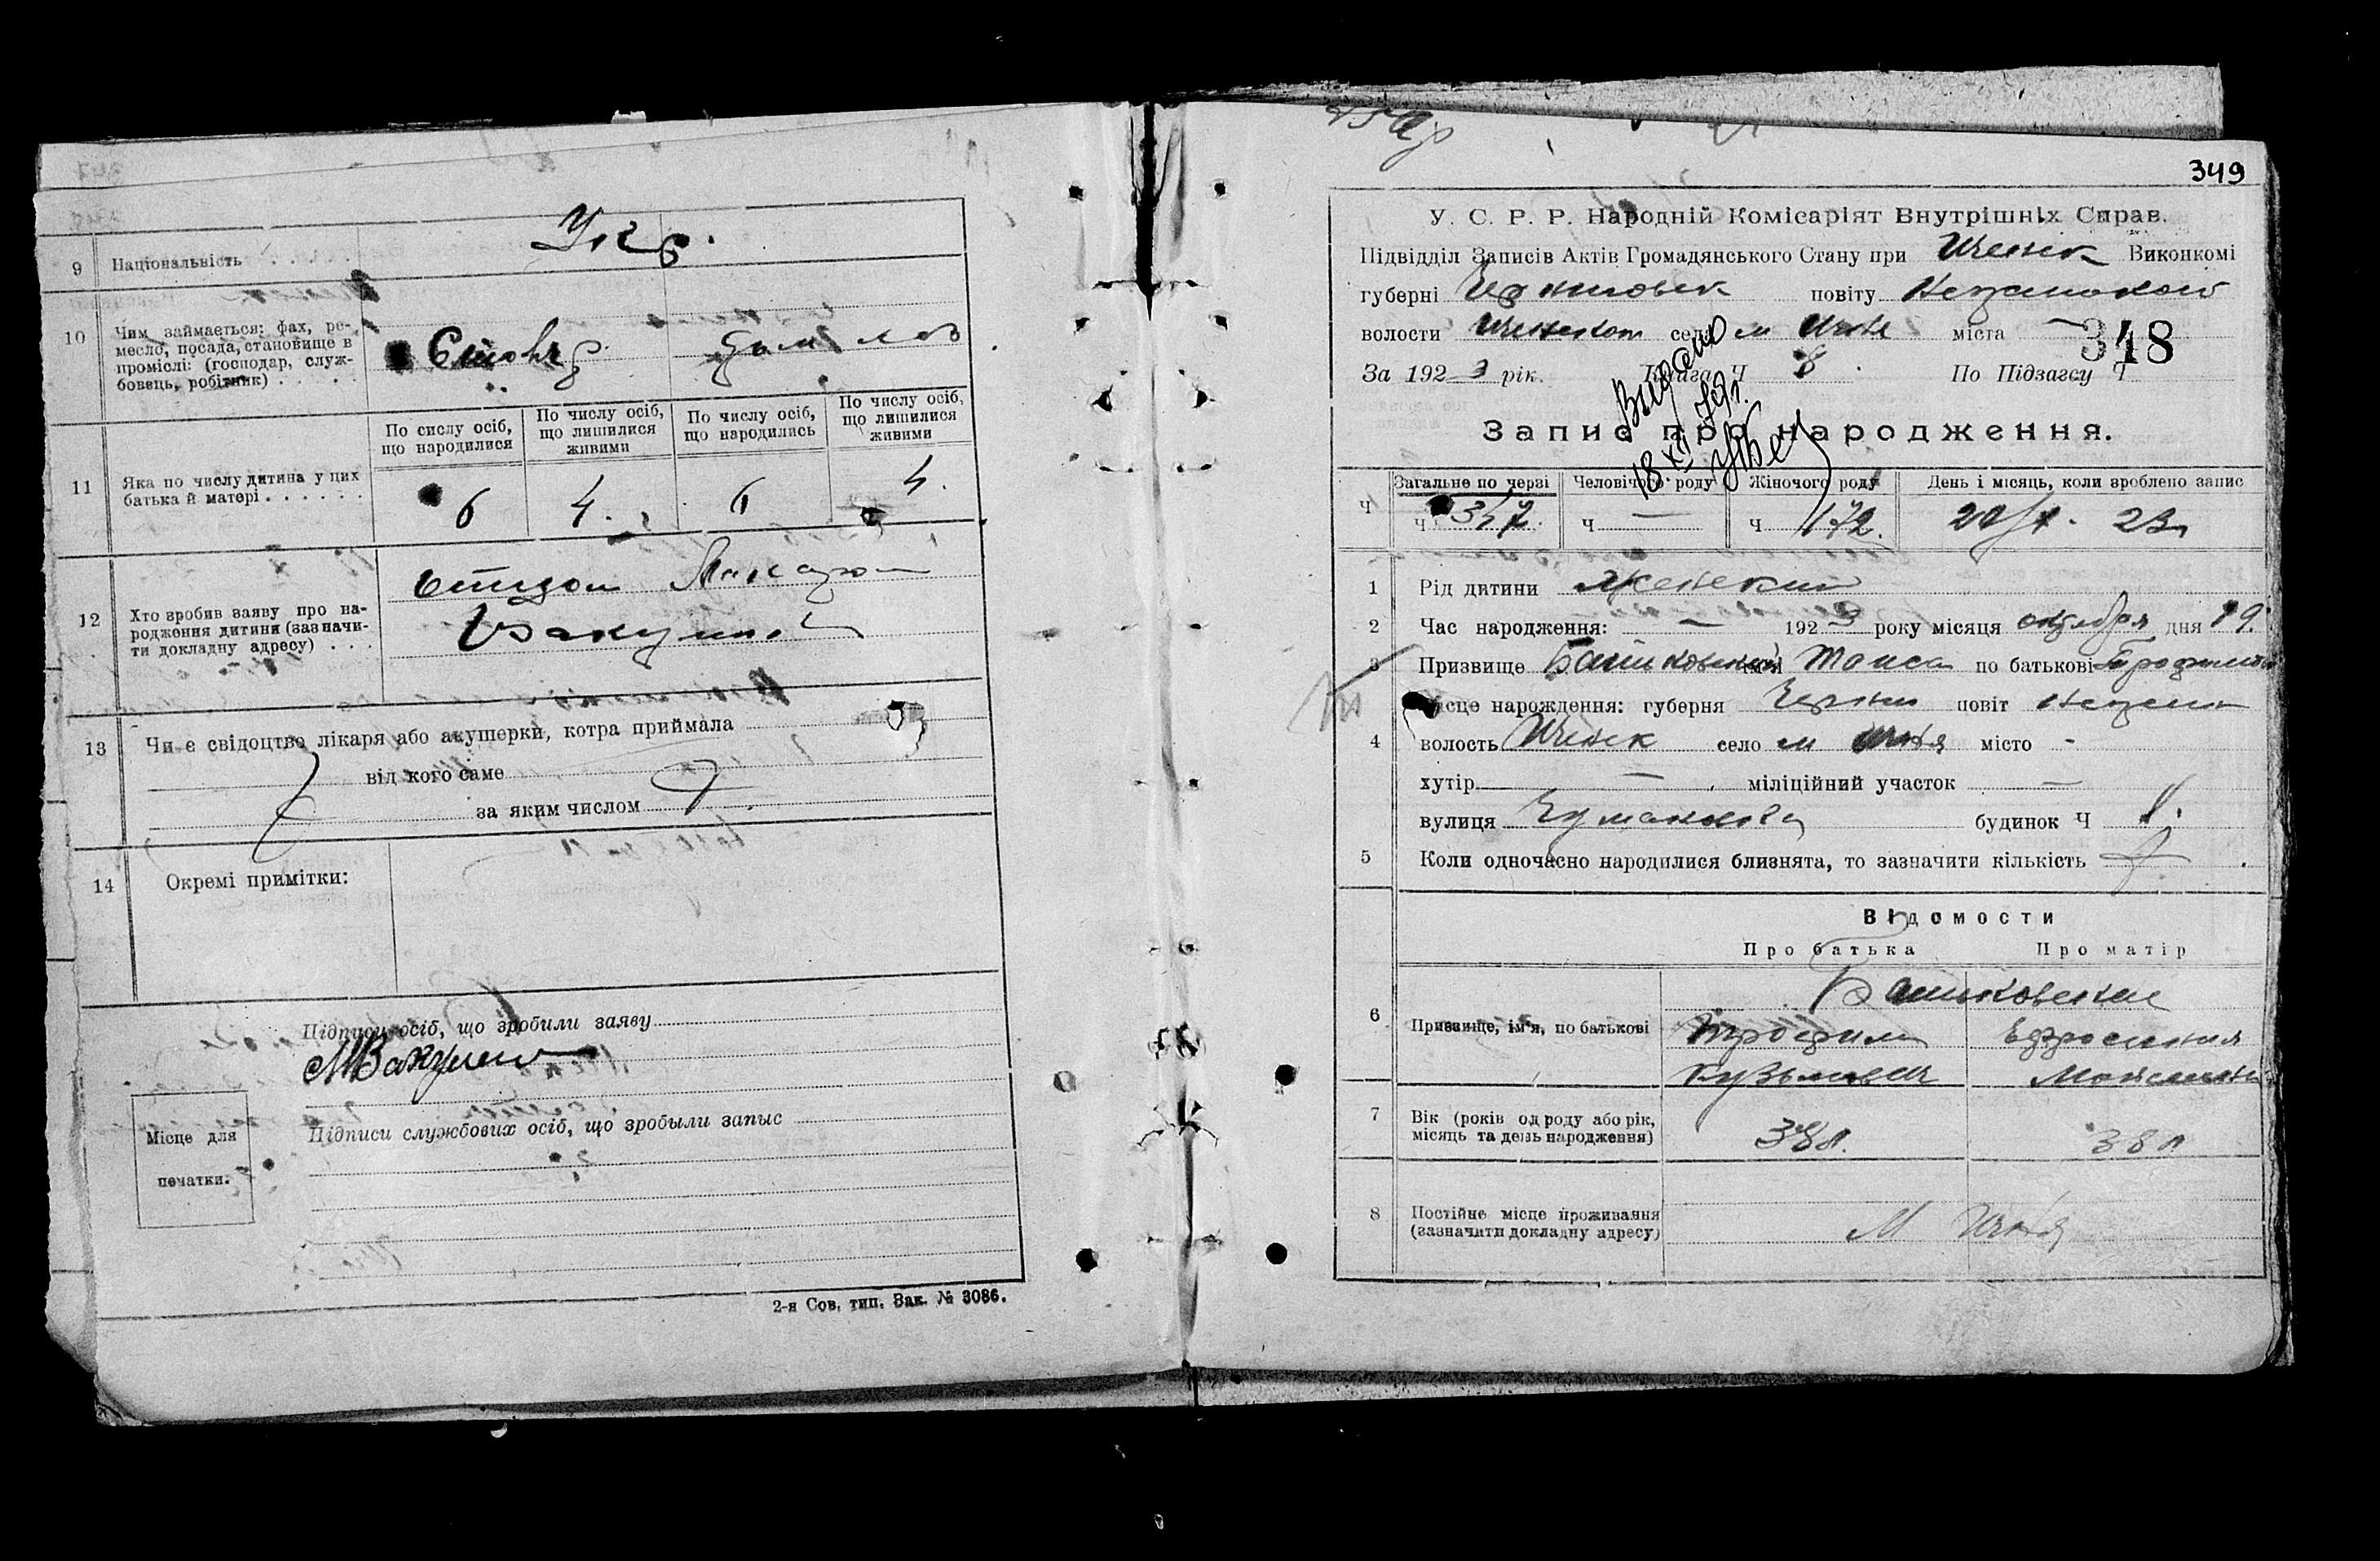 9 Національність
Укр.
10 Чим займається: фах, ре-
месло, посада, становище в
проміслі: (господар, служ-
бовець, робітник) . . . .
Столяр
11 Яка по числу дитина у цих
батька й матері . . . . . .
По сислу осіб,
що народилися
По числу осіб,
що лишилися
живими
По числу осіб,
що народились
По числу осіб,
що лишилися
живими
6 4. 6 4.
12 Хто зробив заяву про на-
родження дитини (зазначи-
ти докладну адресу) . . .
13 Чи є свідоцтво лікаря або акушерки, котра приймала
від кого саме
за яким числом
14 Окремі примітки:
Підписи осіб, що зробили заяву
Місце для
печатки.
Підписи службових осіб, що зробыли запыс
2-я Сов. тип. Зак. № 3086.
349
У. С. Р. Р. Народній Комісаріят Внутрішніх Справ.
Підвідділ Записів Актів Громадянського Стану при Иченск Виконкомі
губерні Черниговск повіту Нежинского
волости Иченской село м Ичня міста —
348
За 1923 рік. Книга Ч 8. По Підзагсу Ч
Выдано
18 XII 79г.
Запис про народження.
Ч
Загальне по черзі
Человічого роду
Жіночого роду
День і місяць, коли зроблено запис
Ч 347. Ч — Ч 172.
1 Рід дитини Женский
2 Час народження: — 1923 року місяця октября дня 19.
3 Призвище Башковская імя Таиса по батькові Трофимов
4 Місце народження: губерня Черниг повіт Нежин
волость Иченск село м Ичня місто -
хутір — міліційний участок —
вулиця будинок Ч
5 Коли одночасно народилися близнята, то зазначити кількість
Відомости
Про батька Про матір
6 Призвище, ім'я, по батькові
Башковские
Трофим Ефросиния
Кузьмович Моисеевна
7 Вік (років од роду або рік,
місяць та день народження)
38 л. 38 л
8 Постійне місце проживання
(зазначити докладну адресу)
М Ичня